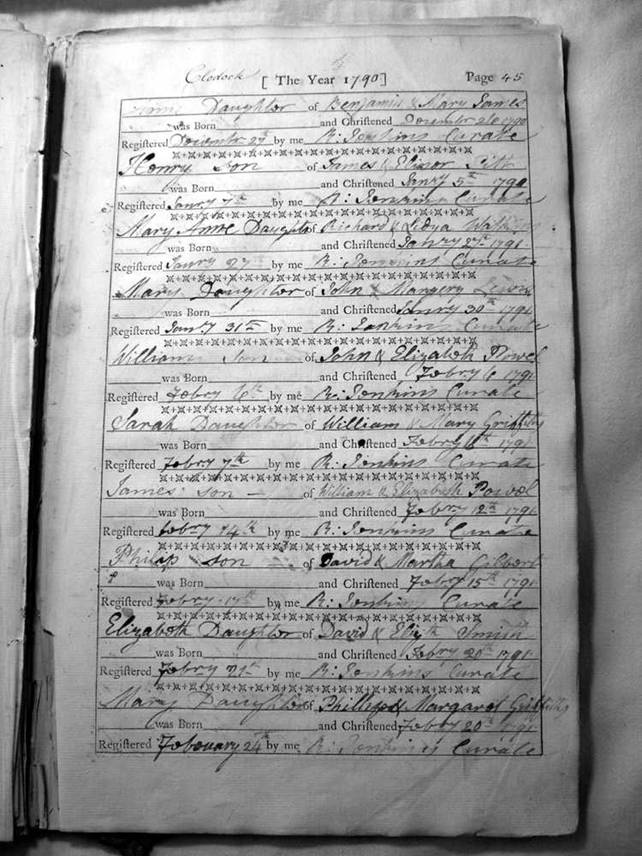 Clodock [ The Year 1790 ] Page 45
Daughter of Benjamin & Mary James
was Born and Christened December 26 1790
Registered December 27th by me R: Jenkins Curate
Henry Son of James & Elinor
was Born and Christened Janry 5th
Registered Janry 7th by me R: Jenkins Curate
Mary Anne Daughter of Richard & Lidya
was Born and Christened Janry 27th 1791
Registered Janry 27 by me R: Jenkins Curate
Mary Daughter of John & Margery Lewis
was Born and Christened Janry 30th 1791
Registered Janry 31st by me R: Jenkins Curate
William Son of John & Elizabeth Powel
was Born and Christened Febry 6 1791
Registered Febry 6th by me R: Jenkins Curate
Sarah Daughter of William & Mary Griffiths
was Born and Christened Febry 6th 1791
Registered Febry 7th by me R: Jenkins Curate
James Son of William & Elizabeth Powel
was Born and Christened Febry 12th 1791
Registered Febry 14th by me R: Jenkins Curate
Philip Son of David & Martha Gilbert
was Born and Christened Febry 15th 1791
Registered Febry 17th by me R: Jenkins Curate
Elizabeth Daughter of David & Elizth Smith
was Born and Christened Febry 20th 1791
Registered Febry 21st by me R: Jenkins Curate
Mary Daughter of Philip & Margaret Griffiths
was Born and Christened Febry 20th 1791
Registered February 24th by me R: Jenkins Curate